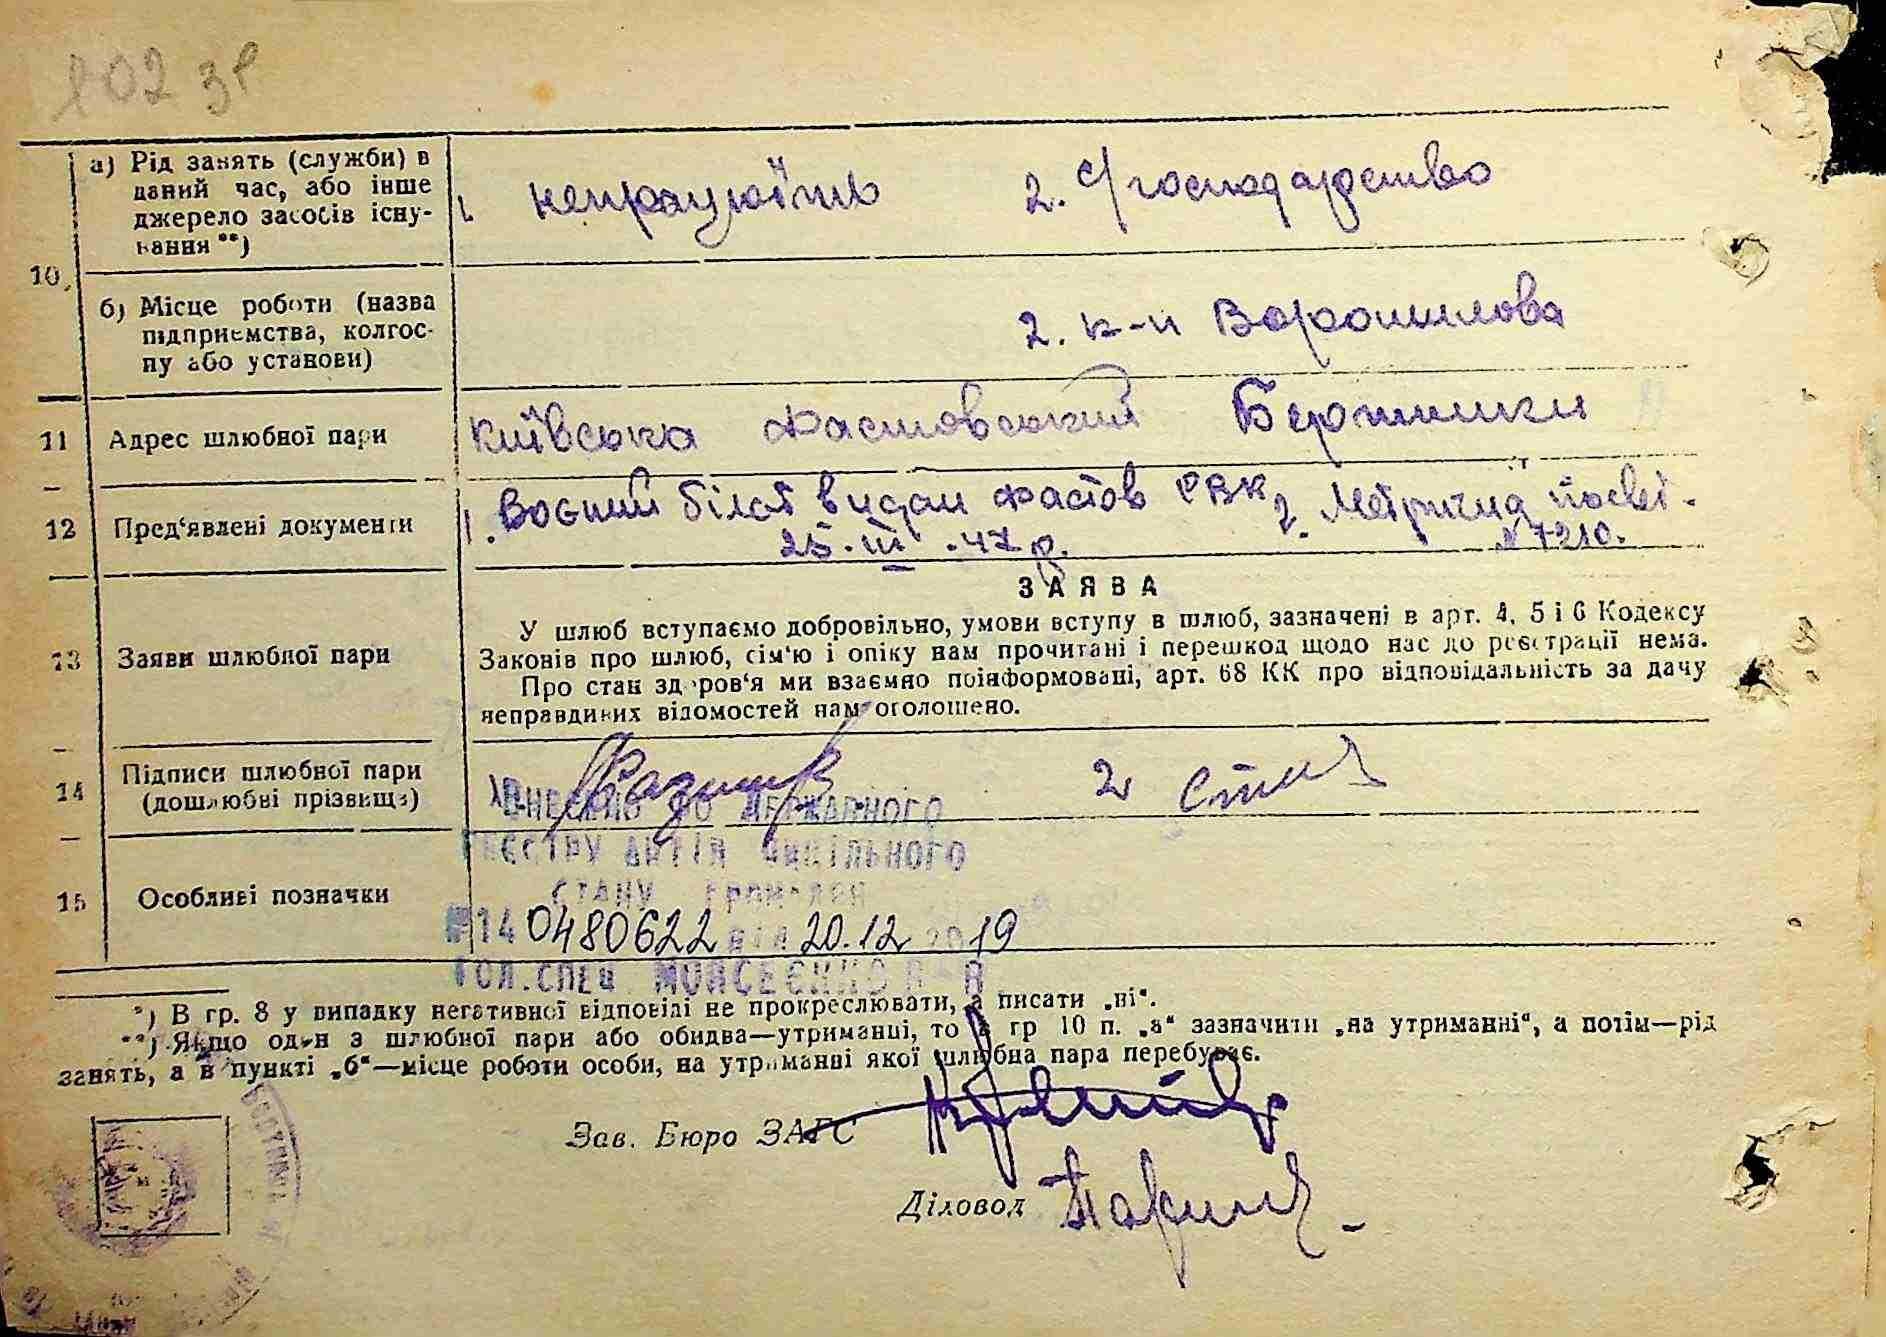 102 зв
10 а) Рід занять (служби) в даний час, або інше джерело засобів існування **)
1. непрацюїть 2. С/господарство
б) Місце роботи (назва підприємства, колгоспу або установи)
2. к-п Ворошилова
11 Адрес шлюбної пари
Київська Фастовський
12 Пред'явлені документи
1. Воєний білет видан Фастов РВК 2. Метрична посві.
25.III.47 р. №7210.
13 Заяви шлюбної пари
ЗАЯВА
У шлюб вступаємо добровільно, умови вступу в шлюб, зазначені в арт. 4, 5 і 6 Кодексу
Законів про шлюб, сім'ю і опіку нам прочитані і перешкод щодо нас до реєстрації нема.
Про стан здоров'я ми взаємно поінформовані, арт. 68 КК про відповідальність за дачу
неправдивих відомостей нам оголошено.
14 Підписи шлюбної пари
(дошлюбні прізвища)
1. 2
ВНЕСЕНО ДО ДЕРЖАВНОГО
РЕЄСТРУ АКТІВ ЦИВІЛЬНОГО
СТАНУ ГРОМАДЯН
15 Особливі позначки
№14 0480622 від 20.12 2019
ГОЛ.СПЕЦ. МОЙСЕЄНКО
*) В гр. 8 у випадку негативної відповіді не прокреслювати, а писати „ні“.
**) Якщо один з шлюбної пари або обидва—утриманці, то в гр 10 п. „а“ зазначити „на утриманні“, а потім—рід
занять, а в пункті „б“—місце роботи особи, на утриманні якої шлюбна пара перебуває.
Зав. Бюро ЗАГС
Діловод